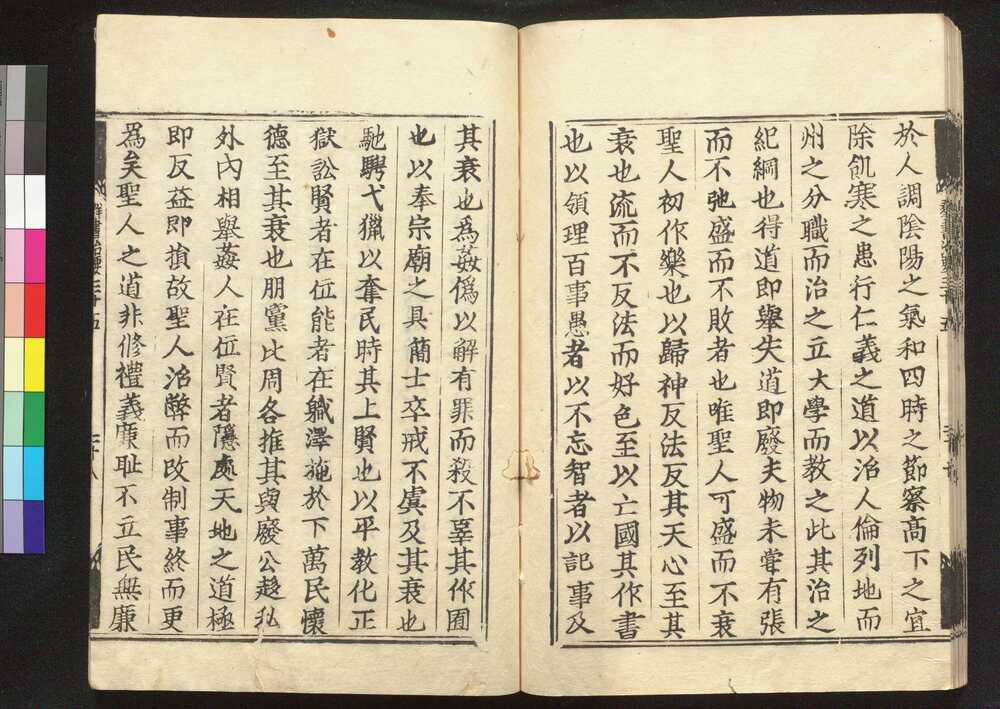 於人調陰陽之氣和四時之節察高下之宜
除飢寒之患行仁義之道以治人倫列地而
州之分職而治之立大學而教之此其治之
紀綱也得道即舉失道即廢夫物未甞有張
而不弛盛而不敗者也唯聖人可盛而不衰
聖人初作樂也以歸神反法反其天心至其
衰也流而不反法而好色至以亡國其作書
也以領理百事愚者以不忘智者以記事及
其衰也為姦偽以解有罪而殺不辜其作囿
也以奉宗廟之具簡士卒戒不虞及其衰也
馳騁弋獵以奪民時其上賢也以平教化正
獄訟賢者在位能者在職澤施於下萬民懷
德至其衰也朋黨比周各推其與廢公趍私
外內相舉姦人在位賢者隱處天地之道極
即反益即損故聖人治弊而改制事終而更
為矣聖人之道非修禮義廉恥不立民無廉
群書治要三十五
二十八